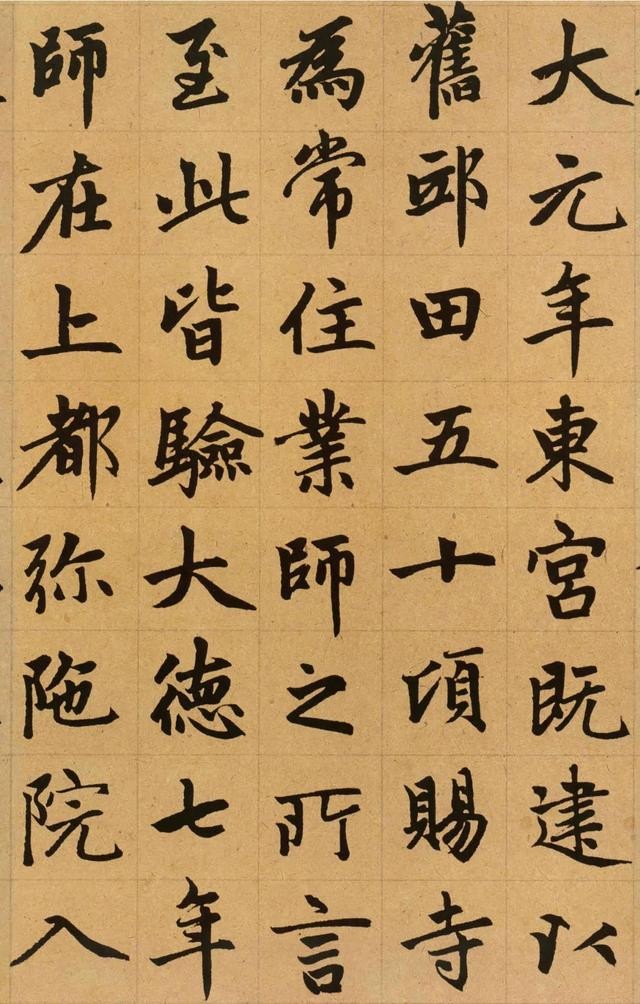 大元年東宮既建以
舊邸田五十頃賜寺
為常住業師之所言
至此皆驗大德七年
師在上都弥陁院入